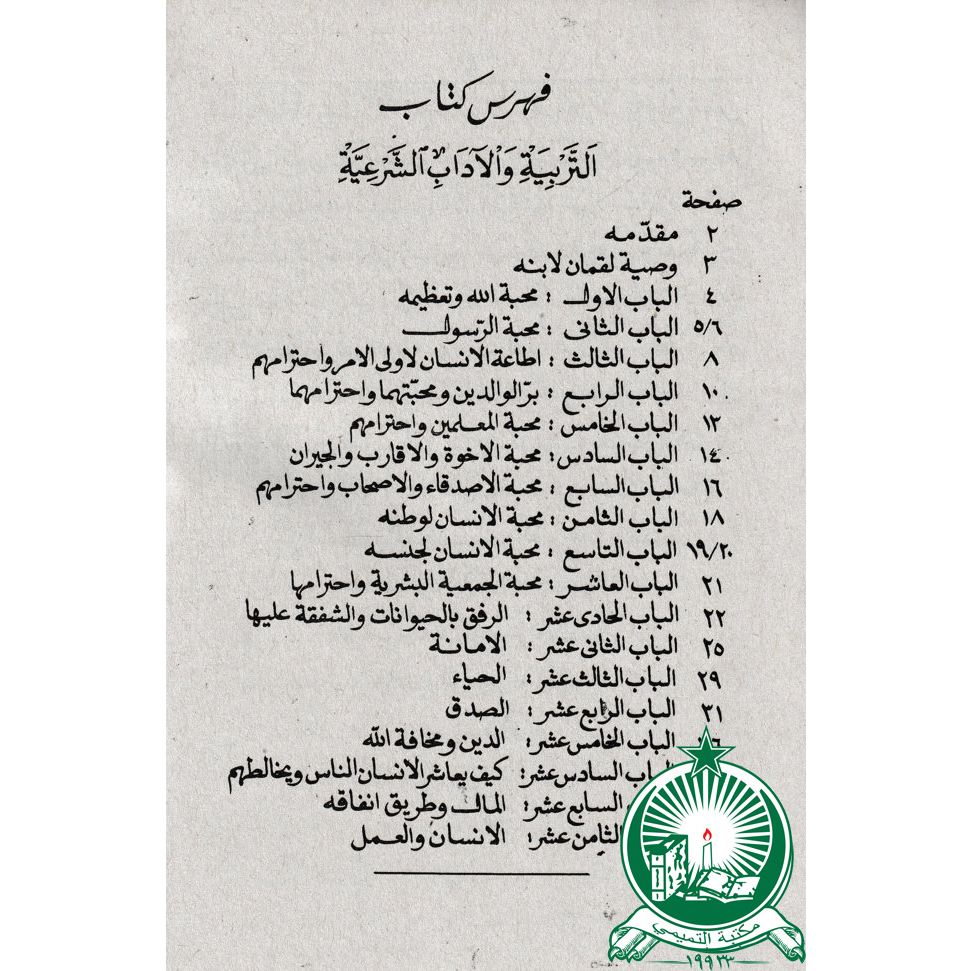 فهرس كتاب
اَلتَّرْبِيَةِ وَالْآدَابِ الشَّرْعِيَّةِ
صفحة
٢ مقدّمه
٣ وصية لقمان لابنه
٤ الباب الاول : محبة الله وتعظيمه
٥/٦ الباب الثانى : محبة الرّسول
٨ الباب الثالث : اطاعة الانسان لاولى الامر واحترامهم
١٠ الباب الرابع : برّ الوالدين ومحبّتهما واحترامهما
١٢ الباب الخامس : محبة المعلمين واحترامهم
١٤ الباب السادس : محبة الاخوة والاقارب والجيران
١٦ الباب السابع : محبة الاصدقاء والاصحاب واحترامهم
١٨ الباب الثامن : محبة الانسان لوطنه
١٩/٢٠ الباب التاسع : محبة الانسان لجنسه
٢١ الباب العاشر : محبة الجمعية البشرية واحترامها
٢٢ الباب الحادى عشر : الرفق بالحيوانات والشفقة عليها
٢٥ الباب الثانى عشر : الامانة
٢٩ الباب الثالث عشر : الحياء
٣١ الباب الرابع عشر : الصدق
الباب الخامس عشر : الدين ومخافة الله
الباب السادس عشر : كيف يعاشر الانسان الناس ويخالطهم
السابع عشر : المال وطريق انفاقه
الثامن عشر : الانسان والعمل
مكتبة التميمي
١٩٩٣٣